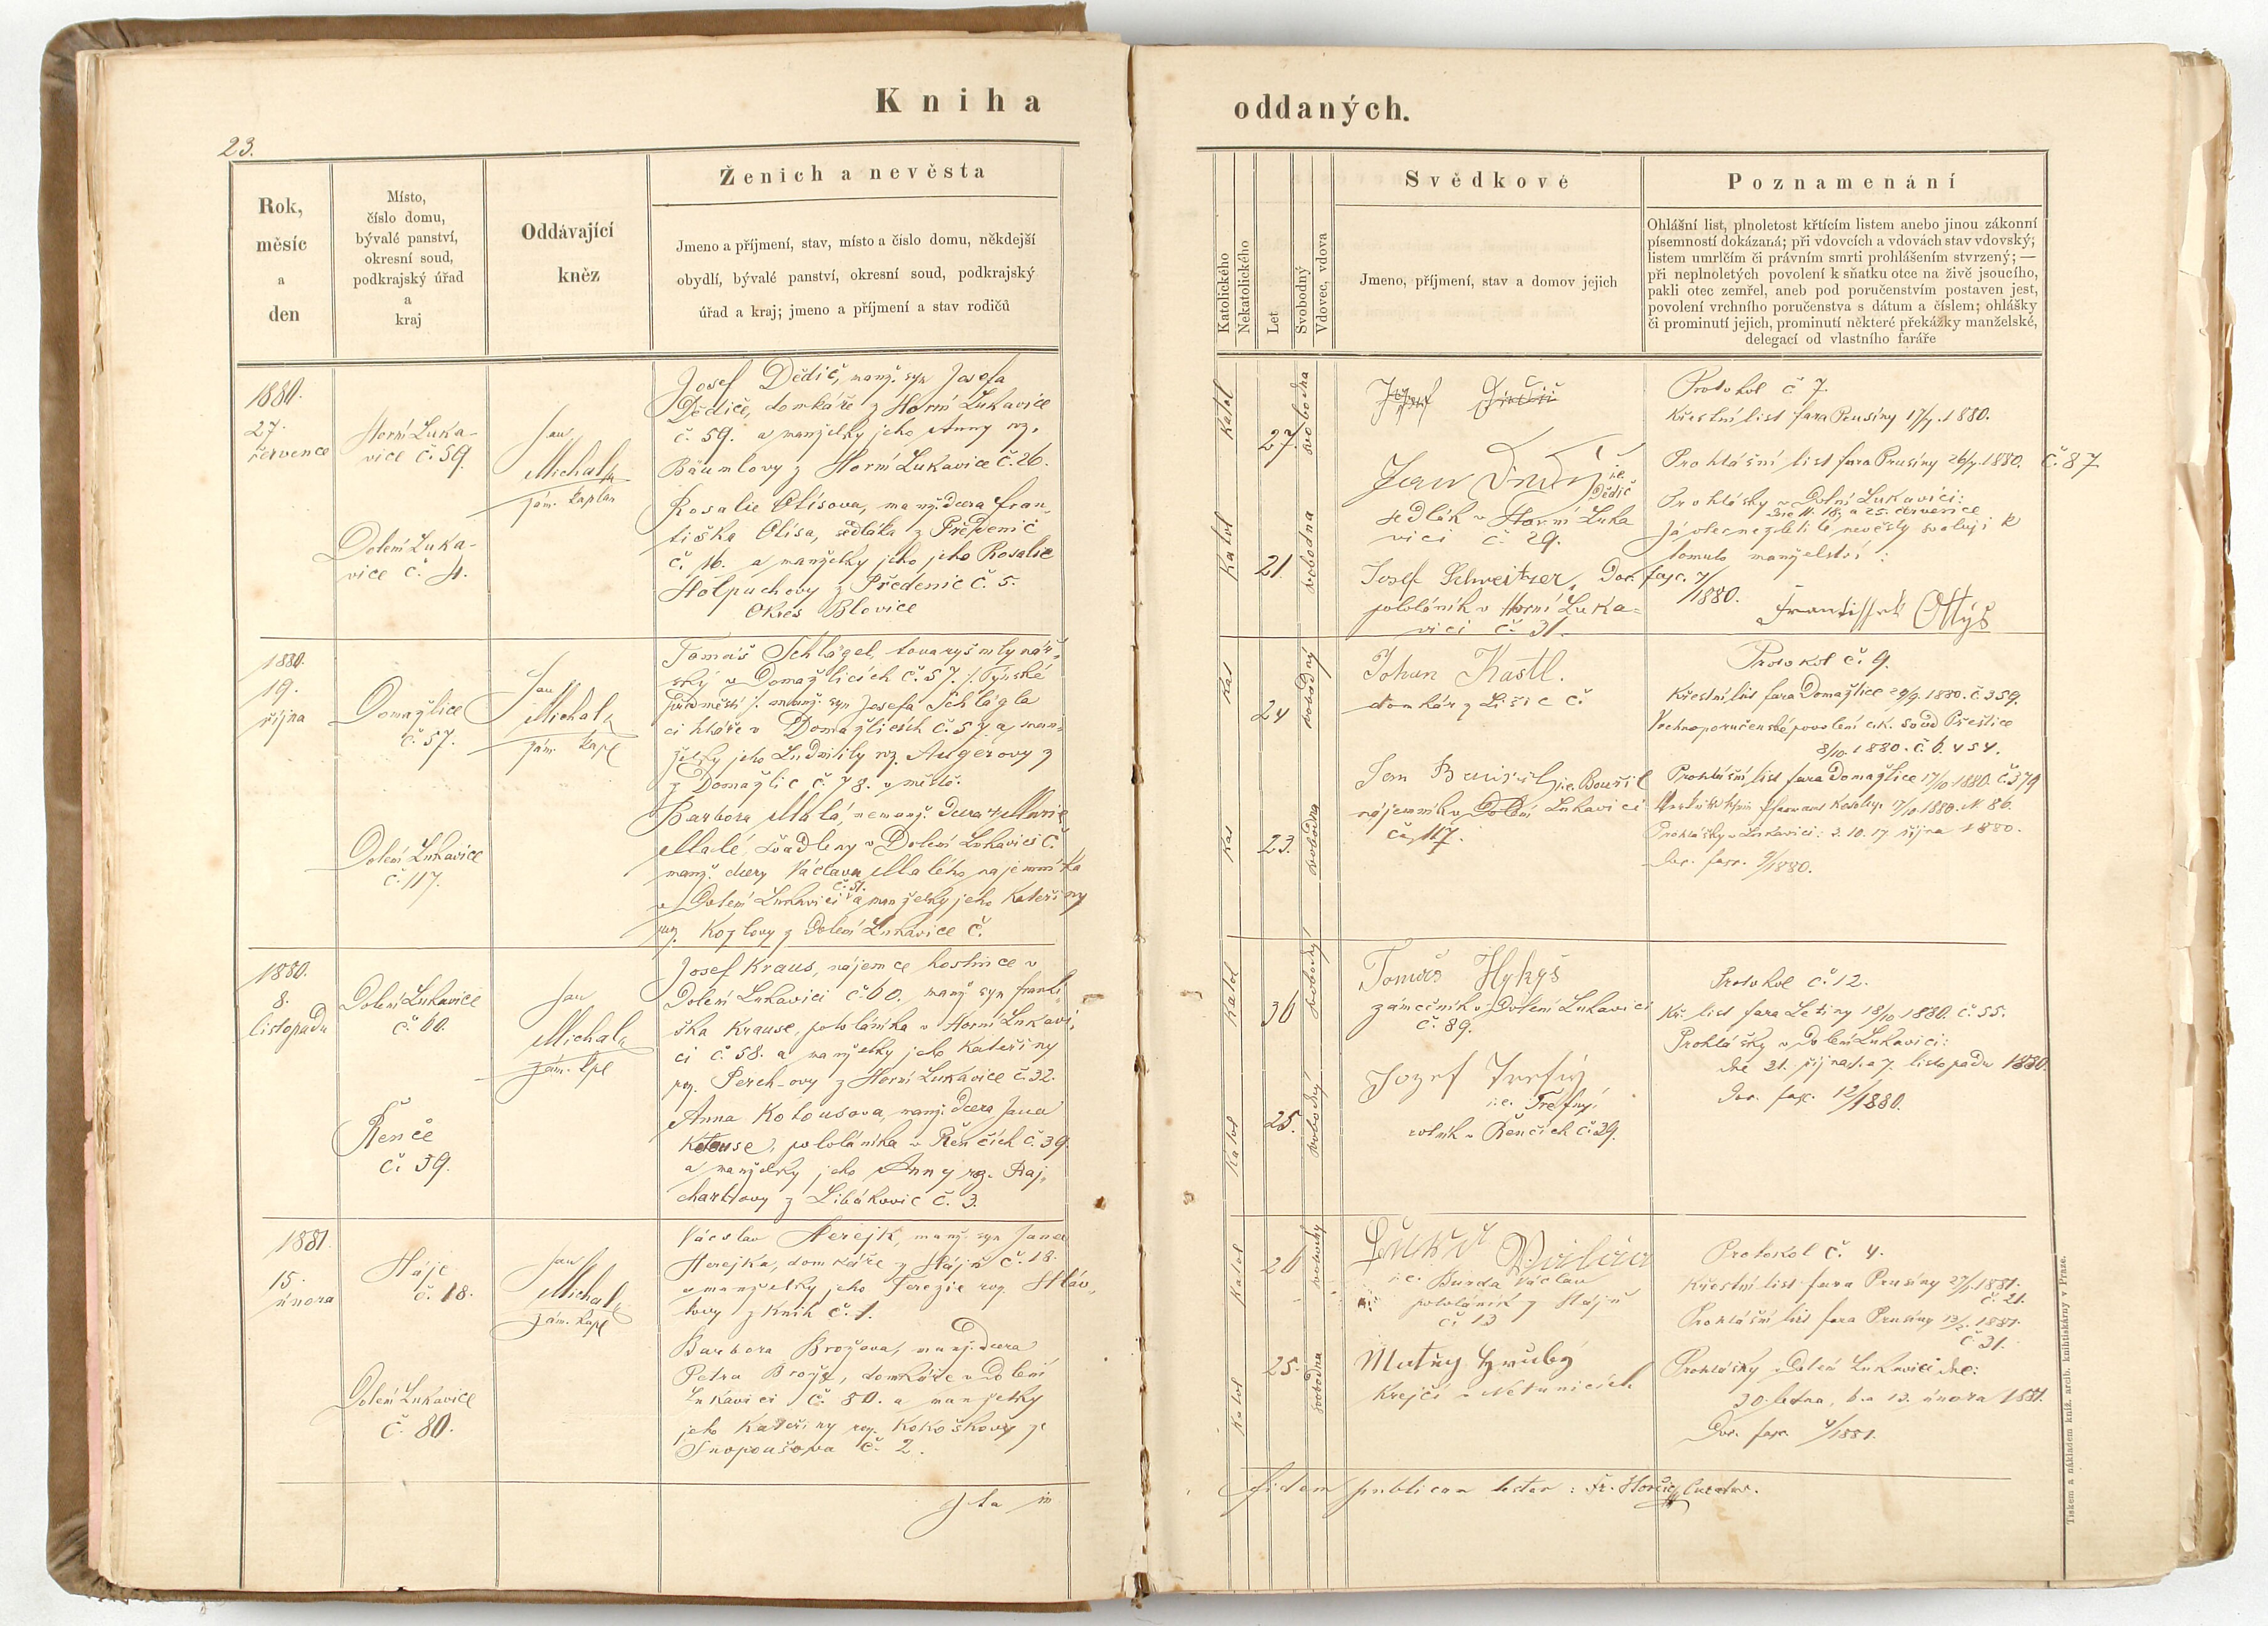 Kniha
oddaných.
23.
Rok,
měsíc
a
den
Místo,
číslo domu,
bývalé panství,
okresní soud,
podkrajský úřad
a
kraj
Oddávající
kněz
Ženich a nevěsta
Jmeno a příjmení, stav, místo a číslo domu, někdejší
obydlí, bývalé panství, okresní soud, podkrajský
úřad a kraj; jmeno a příjmení a stav rodičů
Katolického
Nekatolického
Let
Svobodný
Vdovec, vdova
Svědkové
Jmeno, příjmení, stav a domov jejich
Poznamenání
Ohlášní list, plnoletost křtícím listem anebo jinou zákonní
písemností dokázaná; při vdovcích a vdovách stav vdovský;
listem umrlčím či právním smrti prohlášením stvrzený; —
při neplnoletých povolení k sňatku otce na živě jsoucího,
pakli otec zemřel, aneb pod poručenstvím postaven jest,
povolení vrchního poručenstva s dátum a číslem; ohlášky
či prominutí jejich, prominutí některé překážky manželské,
delegací od vlastního faráře
1880.
27.
července
Horní Luka-
vice č. 59.
Dolení Luka-
vice č. 4.
Jan
Michal
zám. kaplan
Josef Dědič, manž. syn Josefa
Dědiče, domkáře z Horní Lukavice
č. 59. a manželky jeho Anny roz.
Bäumlovy z Horní Lukavice č. 26.
Rosalie Otisova, manž. dcera Fran-
tiška Otisa, sedláka z Předenic
č. 16. a manželky jeho Rosalie
Holpuchovy z Předenic č. 5.
Okres Blovice
Katol
27. svobodna
Katol
21. svobodna
Josef
Jan
i.e.
Dědič
sedlák v Horní Luka
vici č. 29.
Josef Schweitzer,
pololáník v Horní Luka-
vici č. 31.
Protokol č 7.
Křestní list fara Prusiny 17/7. 1880.
Prohlášní list fara Prusiny 26/7. 1880. č. 87
Prohlášky v Dolní Lukavici:
dne 11. 18. a 25. července
Já otec nezletilé nevěsty svoluji k
tomuto manželství:
Dor. fasc. 7/
1880.
Frantisshek Ottýs
1880.
19.
října
Domažlice
č. 57.
Dolení Lukavice
č. 117.
Jan
Michal
zám. kapl
Tomáš Schlögel, tovaryš mlynář-
ský v Domažlicích č. 57. /: Týnské
předměstí :/ manž. syn Josefa Schlögla
cihláře v Domažlicích č. 57 a man-
želky jeho Ludmilly roz. Augerovy z
z Domažlic č. 78. v městě.
Barbora Malá, nemanž. dcera Marie
Malé, švadleny v Dolení Lukavici č.
manž. dcery Václava Malého, nájemníka
č. 51.
v Dolení Lukavici a manželky jeho Kateřiny
roz. Kozlovy z Dolení Lukavice č.
Kat
24 svobodný
Kat
23. svobodna
Johan Kastl.
domkář z Lišic č.
Jan i.e. Bouřil
nájemník v Dolení Lukavici
č. 117.
Protokol č. 9.
Křestní list fara Domažlice 29/9. 1880. č. 359.
Vrchnoporučenské povolení c.k. soud Přeštice
8/10. 1880. č. 6.454.
Prohlášní list fara Domažlice 17/10 1880. č. 379
17/10 1880. N. 86.
Prohlášky v Lukavici: 3. 10. 17 října 1880.
Dor. fasc. 9/1880.
1880.
8.
listopadu
Dolení Lukavice
č. 60.
Řenče
č. 39.
Jan
Michal
zám. kpl
Josef Kraus, nájemce hostince v
Dolení Lukavici č. 60. manž. syn Franti-
ška Krause, pololáníka v Horní Lukavi-
ci č. 58. a manželky jeho Kateřiny
roz. Perchovy z Horní Lukavice č. 32.
Anna Kotousova, manž. dcera Jana
Kotouse, pololáníka v Řenčích č. 39.
a manželky jeho Anny roz. Raj-
chartovy z Libákovic č. 3.
Katol
36 svobodný
Katol
25. svobodný
Tomáš Hykyš
zámečník v Dolení Lukavici
č. 89.
Jozef Trefný
i.e. Trefný
rolník v Řenčích č. 29.
Protokol č. 12.
Kř. list fara Letiny 18/10 1880. č. 55.
Prohlášky v Dolení Lukavici:
dne 21. října a 7. listopadu 1880.
Dor. fasc. 12/1880.
1881.
15.
února
Háje
č. 18.
Dolení Lukavice
č. 80.
Jan
Michal
zám. kapl
Václav Herejk, manž. syn Jana
Herejka, domkáře z Hájů č. 18.
a manželky jeho Terezie roz. Hláv-
kovy z Knih č. 1.
Barbora Brožova, manž. dcera
Petra Brože, domkáře v Dolení
Lukavici č. 80. a manželky
jeho Kateřiny roz. Kokoškovy ze
Snopoušova č. 2.
Katol
26 svobodný
Katol
25. svobodna
i.e. Burda Václav
pololáník z Hájů
č. 13
Matěy Hrubý
Krejčí v Netunicích
Protokol č. 4.
Křestní list fara Prusiny 27/1. 1881.
č. 21.
Prohlášní list fara Prusiny 13/2. 1881.
č. 31.
Prohlášky v Dolení Lukavici dne:
30. ledna, 6. a 13. února 1881.
Dor. fasc. 4/1881.
Ita in
fidem publicam testor: Fr. Curatus.
Tiskem a nákladem kníž. arcib. knihtiskárny v Praze.